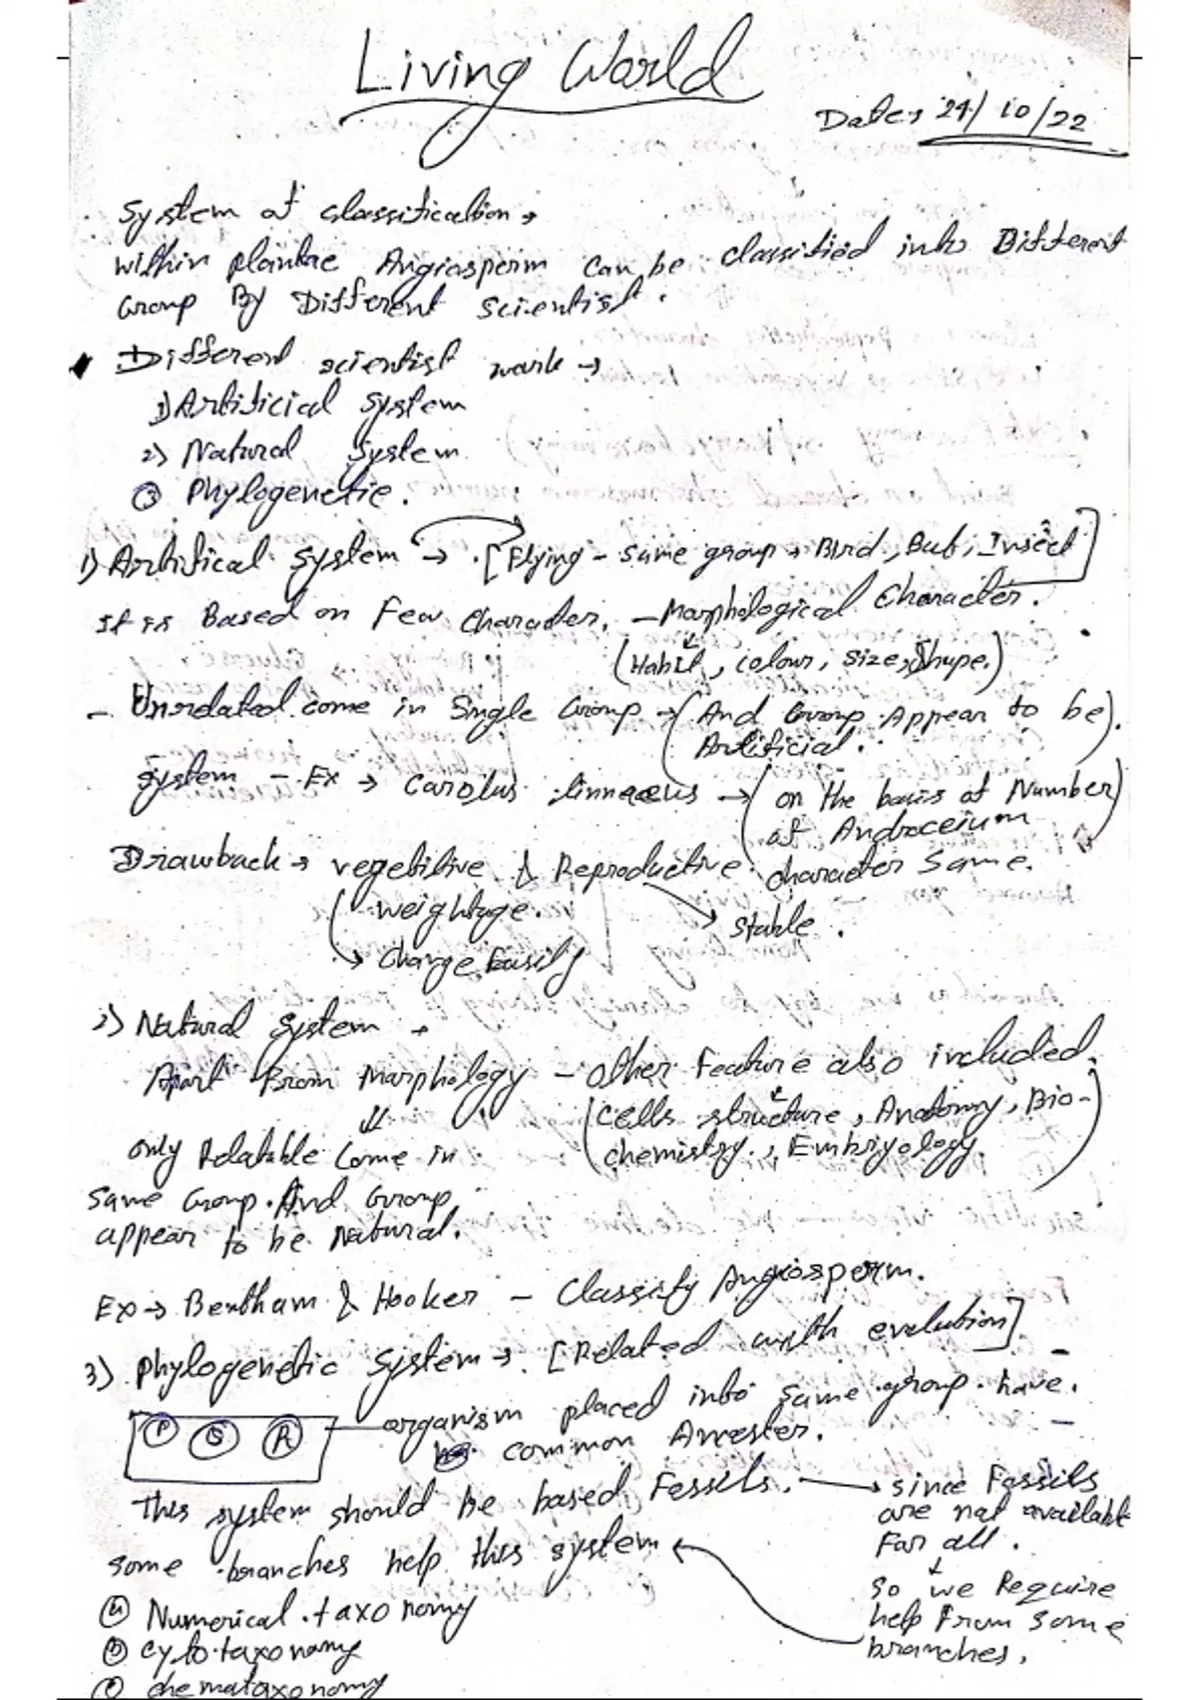 Living World
Date: 24/10/22
System of classification →
Within plantae Angiosperm can be classified into Different
Group By Different Scientist.
Different scientist work →
1) Artificial System
2) Natural System
③ Phylogenetic.
1) Artifical System → [Flying - same group → Bird, But, Insect]
It is Based on Few Character. - Morphological Character.
(Habit, colour, Size, Shape.)
- Unrelated come in Single Group → (And Group Appear to be Artificial.)
System - Ex → Carolus linnaeus → (on the basis of Number
of Androceium
Drawback → vegetitive & Reproductive character Same.
weightage. stable.
→ Change Easily
2) Natural System →
Apart From Morphology - Other Feature also included.
(Cells structure, Anatomy, Bio-
chemistry, Embryology)
only Relatable Come in
Same Group. And Group
appear to be Natural.
Ex → Bentham & Hooker - Classify Angiosperm.
3) Phylogenetic System → [Related with evolution]
Ⓟ Ⓢ Ⓡ — organism placed into same group have
common Ancester.
This system should be based Fossils. → since Fossils
are not available
For all.
some branches help this system
so we Require
help From some
branches.
ⓐ Numerical taxonomy
ⓑ cyto taxonomy
ⓒ chemataxonomy